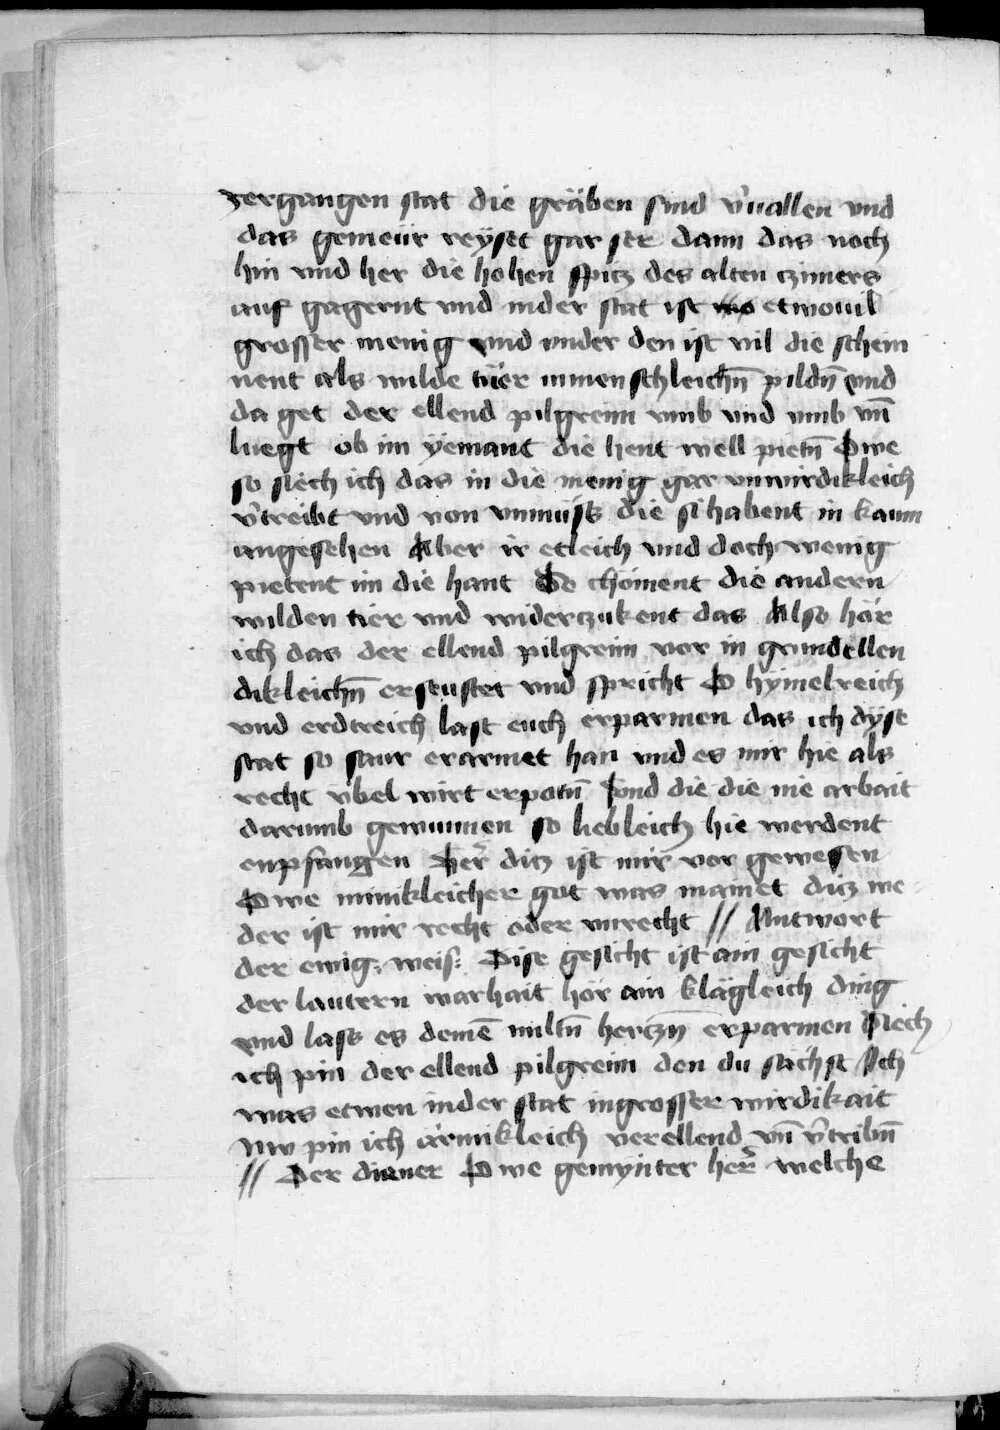 vergangen stat die gräben sind v̓uallen vnd
das gemeür reyset gar ser dann das noch
hin vnd her die hohen spitz des alten czimers
auf gagernt vnd inder stat ist etwouil
grosser menig vnd vnder den ist vil die schein
nent als wilde tier in menschleichn̄ pildn̄ vnd
da get der ellend pilgreim vmb vnd vmb vn̄
luegt ob im yemant die hent well pietn̄ Owe
so siech ich das in die menig gar vnwirdikleich
v̓treibt vnd von vnmüss die si habent in kaum
angesehen Aber ir etleich vnd doch wenig
pietent im die hant So chöment die andern
wilden tier vnd widerczukent das Also hör
ich das der ellend pilgreim vor in grundellen
dikleichn̄ erseuftet vnd spricht O hymelreich
vnd erdtreich last euch erparmen das ich dyse
stat so saur erarnet han vnd es mir hie als
recht vbel wirt erpotn̄ Vnd die die nie arbait
darumb gewunnen so liebleich hie werdent
enpfangen Her̄ ditz ist mir vor gewesen
Owe minikleicher got was mainet ditz we
der ist mir recht oder vnrecht // Antwort
der ewig weis: Dise gesicht ist ain gesicht
der lautern warhait hör ain klägleich ding
vnd lass es deinē miltn̄ hertzn̄ erparmen Siech
ich pin der ellend pilgreim den du sächst Ich
was etwen inder stat ingrosser wirdikait
Nw pin ich ärmikleich verellend vn̄ v̓tribn̄
// Der diener Owe gemynter her̄ welche